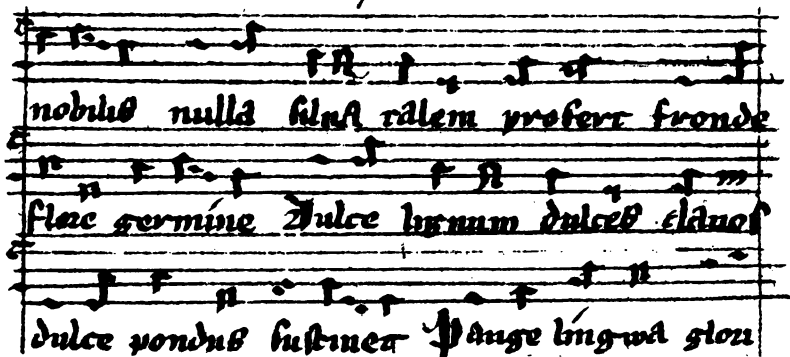 nobilis nulla silua talem profert fronde
flore germine Dulce lignum dulces clauos
dulce pondus sustinet Pange lingwa glori